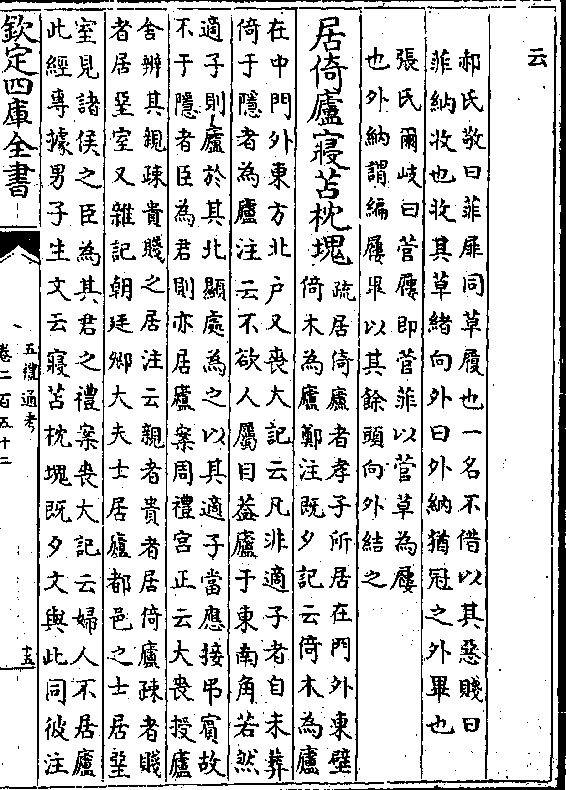 云
郝氏敬曰菲屝同草履也一名不借以其惡賤曰
菲納收也收其草緒向外曰外納猶冠之外畢也
張氏爾岐曰菅屨即菅菲以菅草為屨
也外納謂編屨畢以其餘頭向外結之
居倚廬寢苫枕塊
疏居倚廬者孝子所居在門外東壁
倚木為廬鄭注既夕記云倚木為廬
在中門外東方北户又喪大記云凡非適子者自未葬
倚于隱者為廬注云不欲人屬目葢廬于東南角若然
適子則廬於其北顯處為之以其適子當應接弔賓故
不于隱者臣為君則亦居廬案周禮宮正云大喪授廬
舍辨其親疎貴賤之居注云親者貴者居倚廬疎者賤
者居堊室又雜記朝廷卿大夫士居廬都邑之士居堊
室見諸侯之臣為其君之禮案喪大記云婦人不居廬
此經專據男子生文云寢苫枕塊既夕文與此同彼注
欽定四庫全書
五禮通考
卷二百五十二
十五